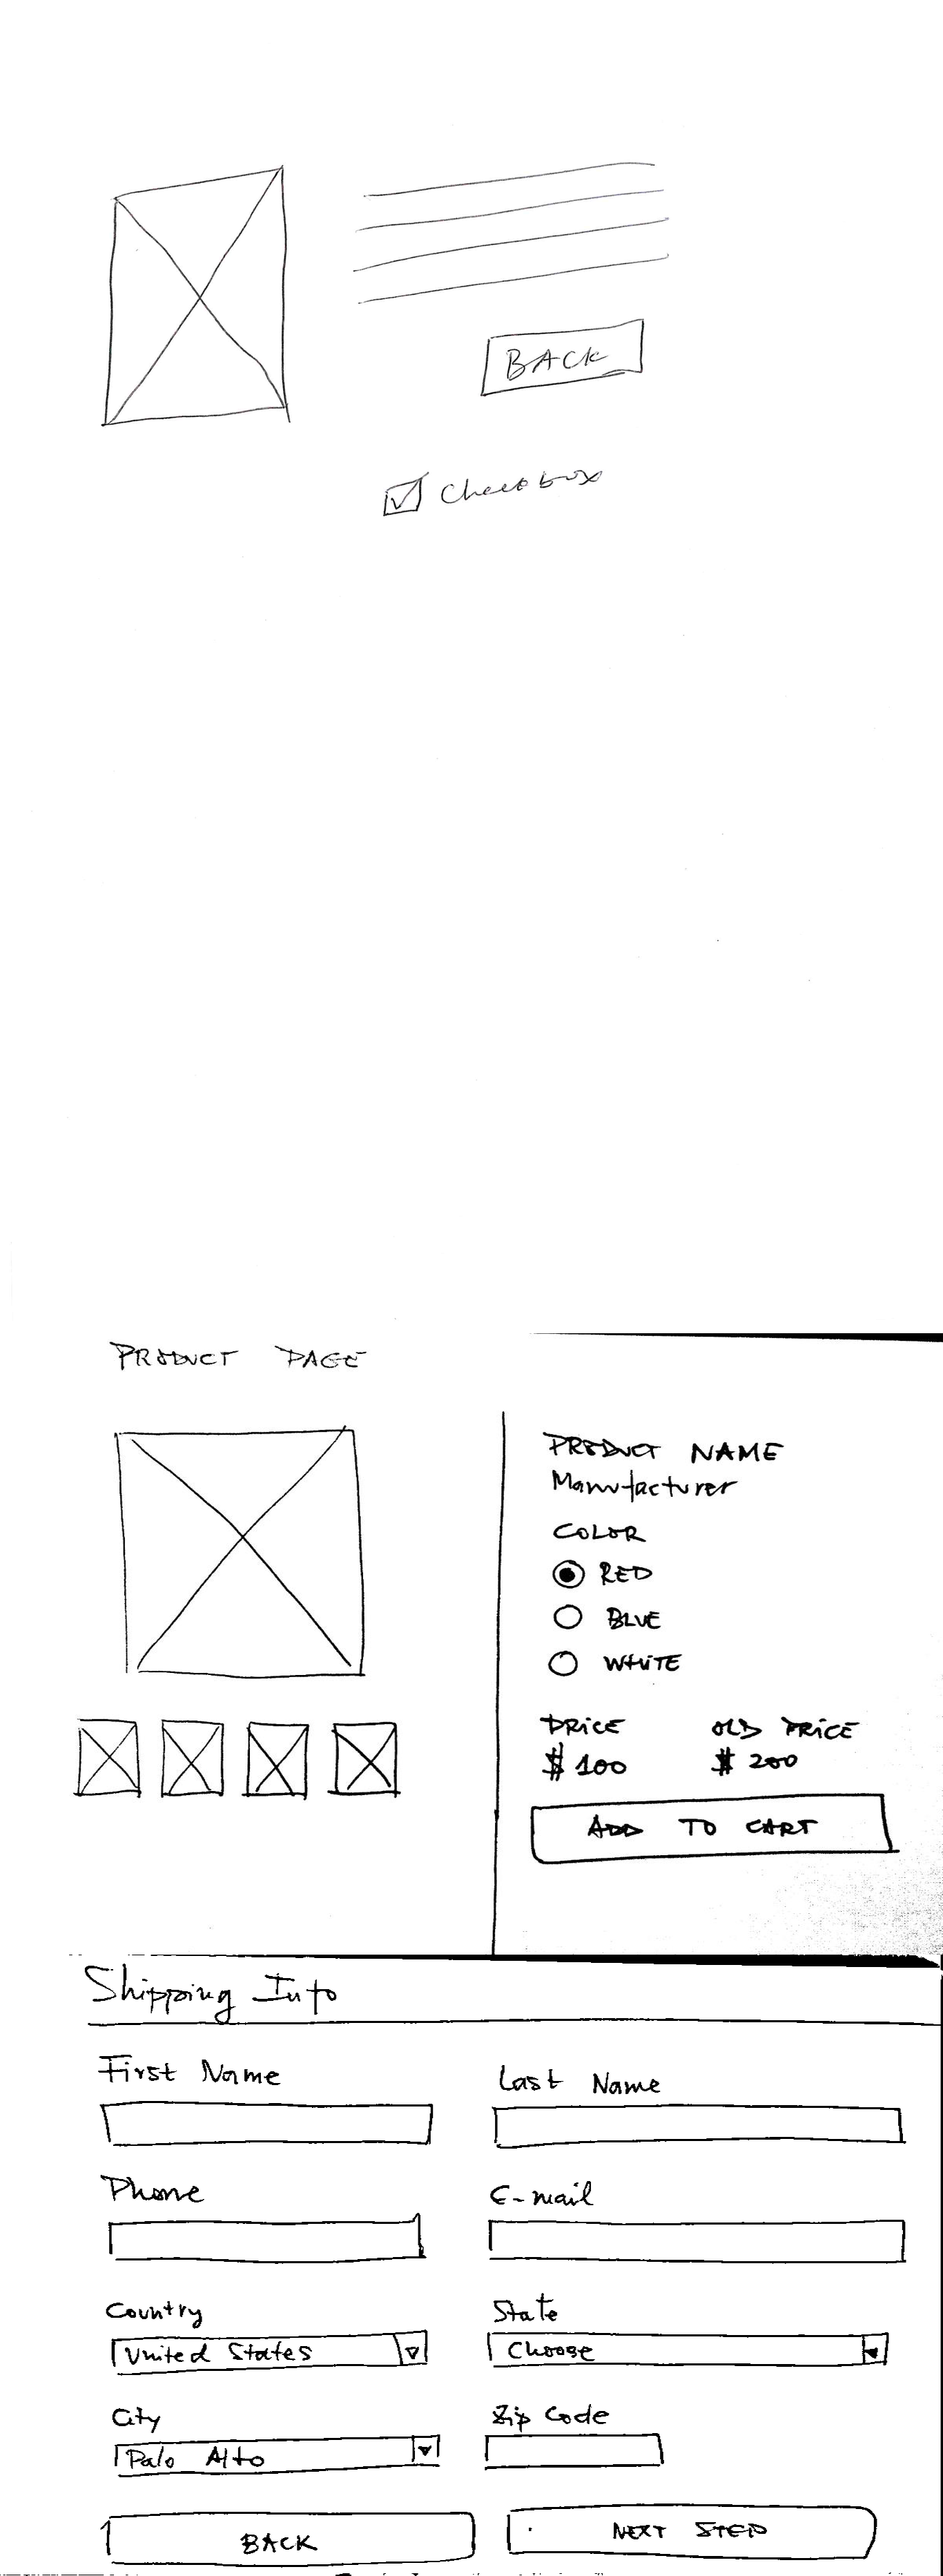 BACK
Checkbox
PRODUCT PAGE
PRODUCT NAME
Manufacturer
COLOR
RED
BLUE
WHITE
PRICE OLD PRICE
$100 $200
ADD TO CART
Shipping Info
First Name Last Name
Phone E-mail
Country State
United States Choose
City Zip Code
Palo Alto
BACK NEXT STEP